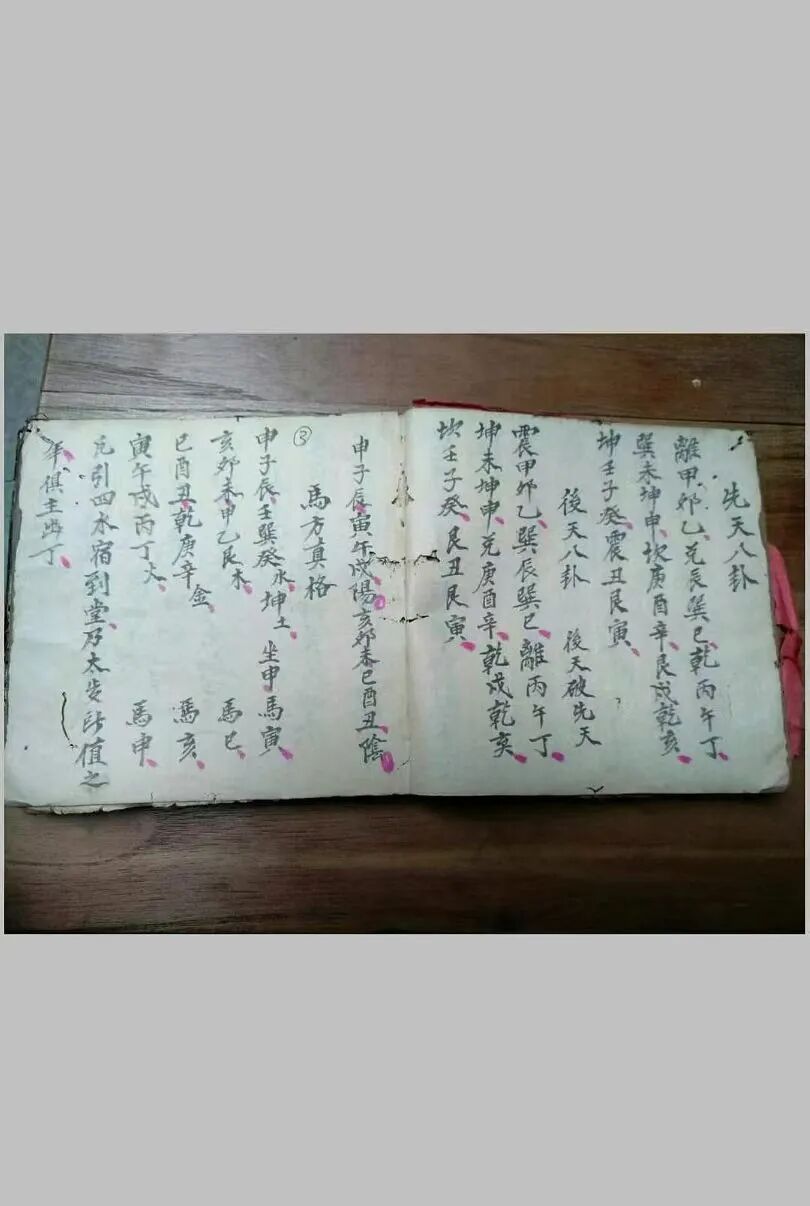 先天八卦
離甲卯乙、兑辰巽巳、乾丙午丁、
巽未坤申、坎庚酉辛、艮戌乾亥、
坤壬子癸、震丑艮寅、
後天八卦 後天破先天
震甲卯乙、巽辰巽巳、離丙午丁、
坤未坤申、兑庚酉辛、乾戌乾亥、
坎壬子癸、艮丑艮寅、
申子辰寅午戌陽。亥卯未巳酉丑、陰。
馬方真格
③
申子辰、壬巽癸水、坤土、坐申馬寅、
亥卯未、甲乙艮木、馬巳、
巳酉丑、乾庚辛金、馬亥、
寅午戌丙丁火、馬申、
凡引四水宿到堂、乃太歲所值之
年、俱主出丁、